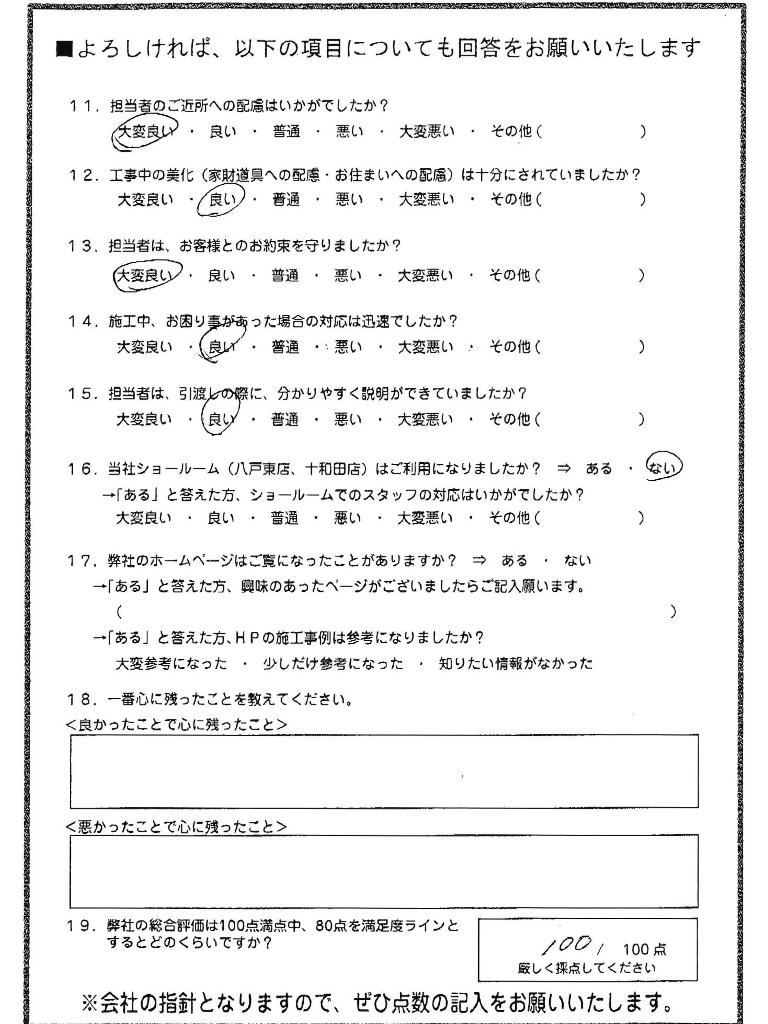 ■よろしければ、以下の項目についても回答をお願いいたします
11．担当者のご近所への配慮はいかがでしたか？
大変良い ・ 良い ・ 普通 ・ 悪い ・ 大変悪い ・ その他（　　　　　　）
12．工事中の美化（家財道具への配慮・お住まいへの配慮）は十分にされていましたか？
大変良い ・ 良い ・ 普通 ・ 悪い ・ 大変悪い ・ その他（　　　　　　）
13．担当者は、お客様とのお約束を守りましたか？
大変良い ・ 良い ・ 普通 ・ 悪い ・ 大変悪い ・ その他（　　　　　　）
14．施工中、お困り事があった場合の対応は迅速でしたか？
大変良い ・ 良い ・ 普通 ・ 悪い ・ 大変悪い ・ その他（　　　　　　）
15．担当者は、引渡しの際に、分かりやすく説明ができていましたか？
大変良い ・ 良い ・ 普通 ・ 悪い ・ 大変悪い ・ その他（　　　　　　）
16．当社ショールーム（八戸東店、十和田店）はご利用になりましたか？ ⇒ ある ・ ない
→「ある」と答えた方、ショールームでのスタッフの対応はいかがでしたか？
大変良い ・ 良い ・ 普通 ・ 悪い ・ 大変悪い ・ その他（　　　　　　）
17．弊社のホームページはご覧になったことがありますか？ ⇒ ある ・ ない
→「ある」と答えた方、興味のあったページがございましたらご記入願います。
（　　　　　　　　　　　　　　　　　　　　　　　　）
→「ある」と答えた方、HPの施工事例は参考になりましたか？
大変参考になった ・ 少しだけ参考になった ・ 知りたい情報がなかった
18．一番心に残ったことを教えてください。
＜良かったことで心に残ったこと＞
＜悪かったことで心に残ったこと＞
19．弊社の総合評価は100点満点中、80点を満足度ラインと
するとどのくらいですか？
100 / 100点
厳しく採点してください
※会社の指針となりますので、ぜひ点数の記入をお願いいたします。